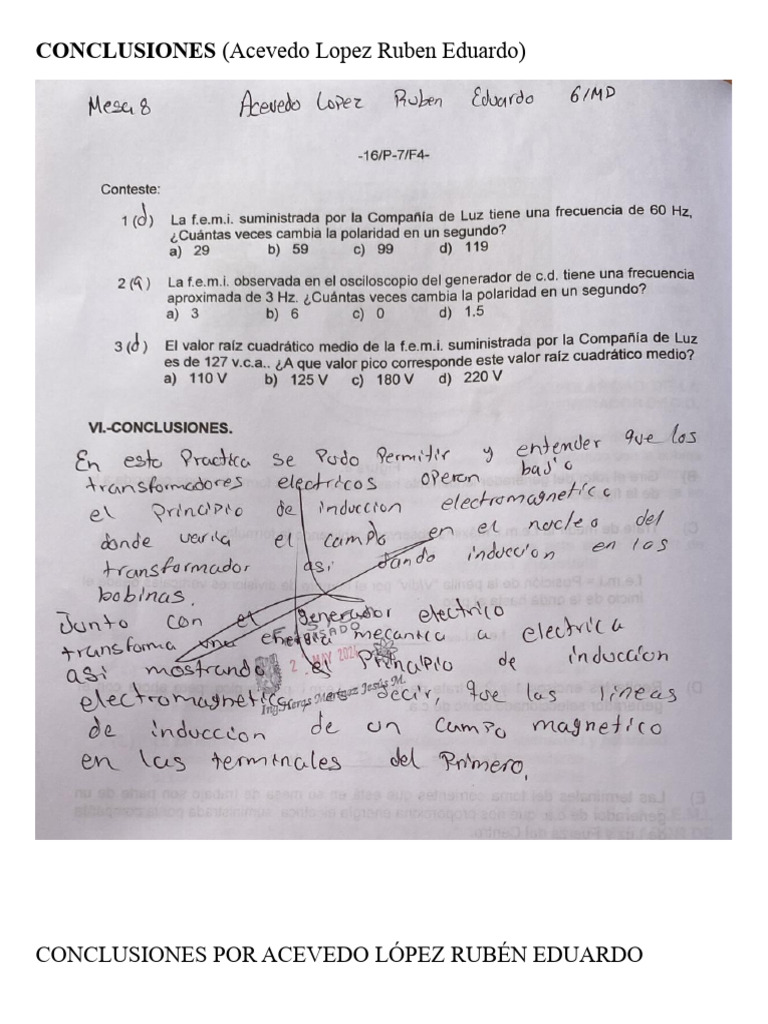 CONCLUSIONES (Acevedo Lopez Ruben Eduardo)
Mesa 8 Acevedo Lopez Ruben Eduardo 6/MD
-16/P-7/F4-
Conteste:
1 (d) La f.e.m.i. suministrada por la Compañía de Luz tiene una frecuencia de 60 Hz,
¿Cuántas veces cambia la polaridad en un segundo?
a) 29 b) 59 c) 99 d) 119
2 (a) La f.e.m.i. observada en el osciloscopio del generador de c.d. tiene una frecuencia
aproximada de 3 Hz. ¿Cuántas veces cambia la polaridad en un segundo?
a) 3 b) 6 c) 0 d) 1.5
3 (d) El valor raíz cuadrático medio de la f.e.m.i. suministrada por la Compañía de Luz
es de 127 v.c.a.. ¿A que valor pico corresponde este valor raíz cuadrático medio?
a) 110 V b) 125 V c) 180 V d) 220 V
VI.-CONCLUSIONES.
En esta Practica se Pudo Permitir y entender que los
transformadores electricos operan bajo
el Principio de induccion electromagnetica
donde varia el campo en el nucleo del
transformador asi dando induccion en las
bobinas.
Junto con el generador electrico
transforma una energia mecanica a electrica
asi mostrando el Principio de induccion
electromagnetica decir, que las lineas
de induccion de un campo magnetico
en las terminales del Primero.
REVISADO
2 MAY 2024
Ing. Heras Jesús M.
CONCLUSIONES POR ACEVEDO LÓPEZ RUBÉN EDUARDO